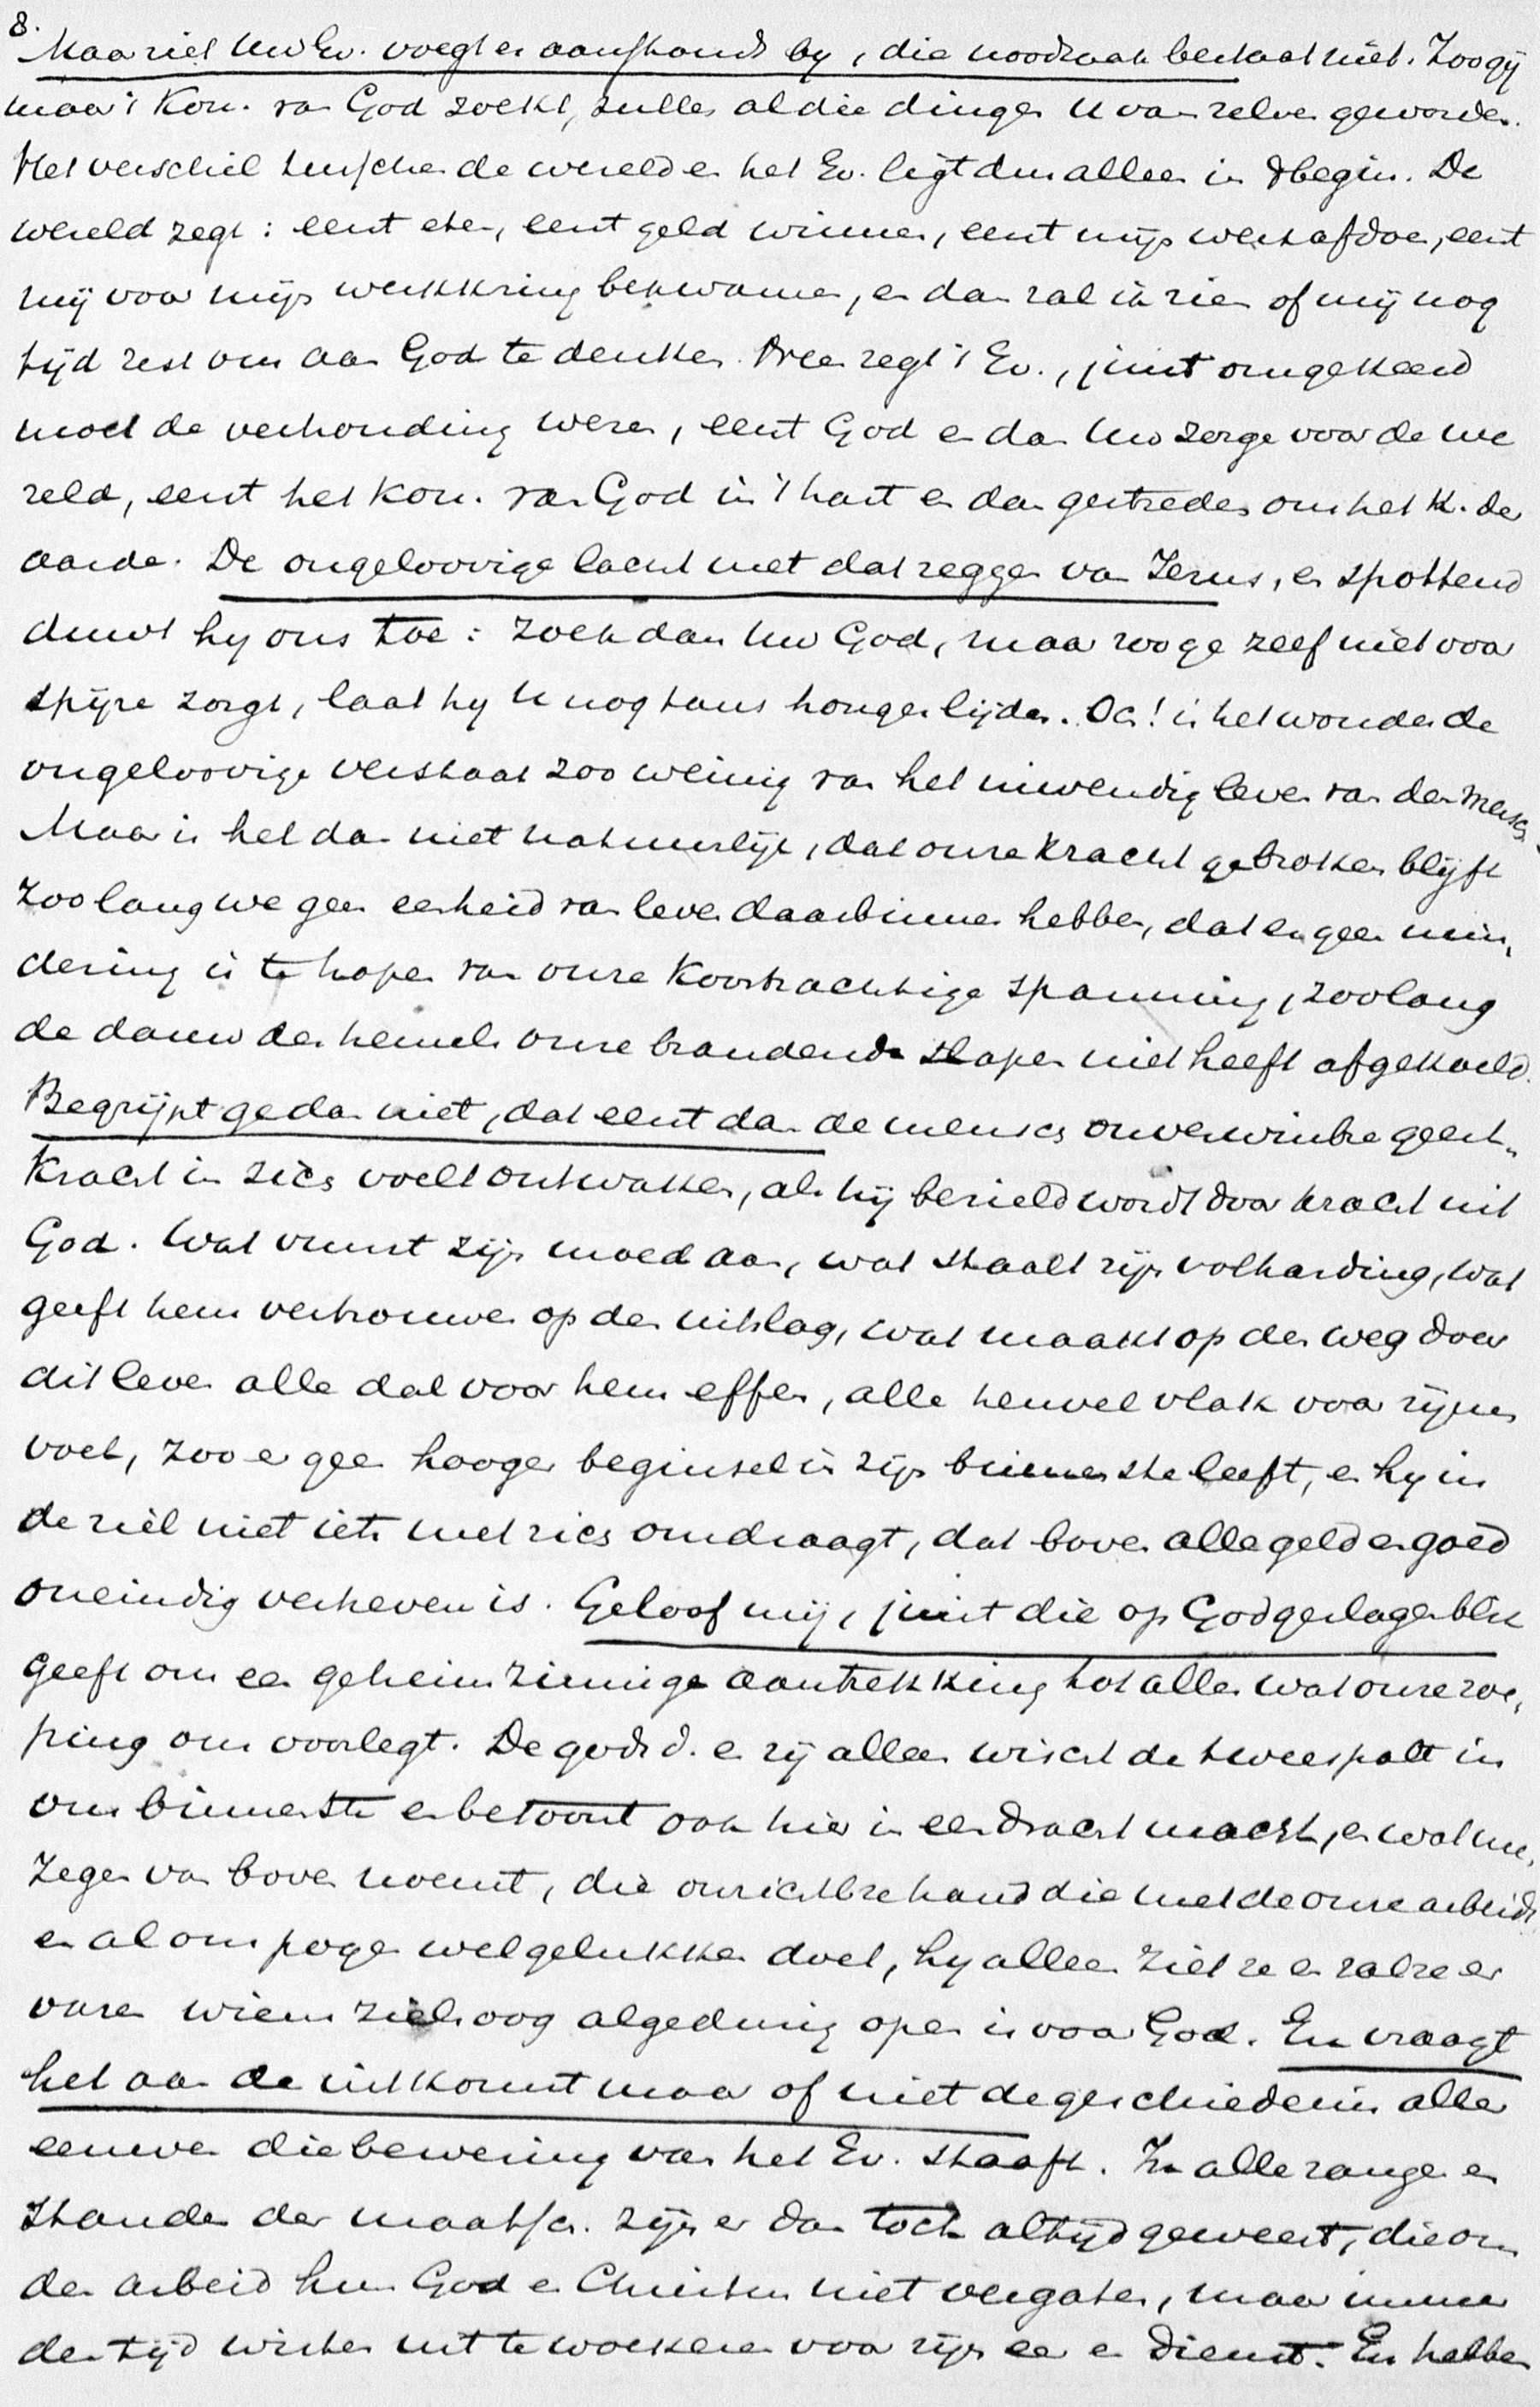 8.
Maar ziet Uw Ev. voegt er aanstonds by, die noodzaak bestaat niet. Zoo gij
maar 't Kon. van God zoekt, zullen al die dingen U van zelven geworden.
Het verschil tusschen de wereld en het Ev. ligt dus alleen in 't begin. De
wereld zegt: eerst eten, eerst geld winnen, eerst mijn werk afdoen, eerst
mij voor mijn werkkring bekwamen, en dan zal ik zien of mij nog
tijd rest om aan God te denken. Neen zegt 't Ev., juist omgekeerd
moet de verhouding wezen, eerst God en dan Uw zorge voor de we
reld, eerst het Kon. van God in 't hart en dan gestreden om het K. der
aarde. De ongeloovige lacht met dat zeggen van Jezus, en spottend
duwt hy ons toe: zoek dan Uw God, maar zoo ge zelf niet voor
spijze zorgt, laat hy U nogtans honger lijden. Och! is het wonder de
ongeloovige verstaat zoo weinig van het inwendig leven van den mensch.
Maar is het dan niet natuurlijk, dat onze kracht gebroken blijft
zoolang we geen eenheid van leven daarbinnen hebben, dat er geen min,
dering is te hopen van onze koortsachtige spanning, zoolang
de dauw des hemels onze brandende slapen niet heeft afgekoeld.
Begrijpt ge dan niet, dat eerst dan de mensch onverwinbre geest,
kracht in zich voelt ontwaken, als hij bezield wordt door kracht uit
God. Wat vuurt zijn moed aan, wat staalt zijn volharding, wat
geeft hem vertrouwen op den uitslag, wat maakt op den weg door
dit leven alle dal voor hem effen, alle heuvel vlak voor zijnen
voet, zoo er geen hooger beginsel in zijn binnenste leeft, en hy in
de ziel niet iets met zich omdraagt, dat boven alle geld en goed
oneindig verheven is. Geloof mij, juist die op God geslagen blik
geeft ons een geheimzinnige aantrekking tot alles wat onze roe,
ping ons voorlegt. De godsd. en zij alleen wischt de tweespalt in
ons binnenste en betoont ook hier in eendracht macht, en wat men
zegen van boven noemt, die onzichtbre hand die met de onze arbeidt
en al ons pogen welgelukken doet, hy alleen ziet ze en zal ze er
varen wiens zielsoog algeduring open is voor God. En vraagt
het aan de uitkomst maar of niet de geschiedenis aller
eeuwen die bewering van het Ev. staaft. In alle rangen en
standen der maatsch. zijn er dan toch altijd geweest, die om
den arbeid hun God en Christus niet vergaten, maar immer
den tijd wisten uit te woekeren voor zijn eer en dienst. En hebben